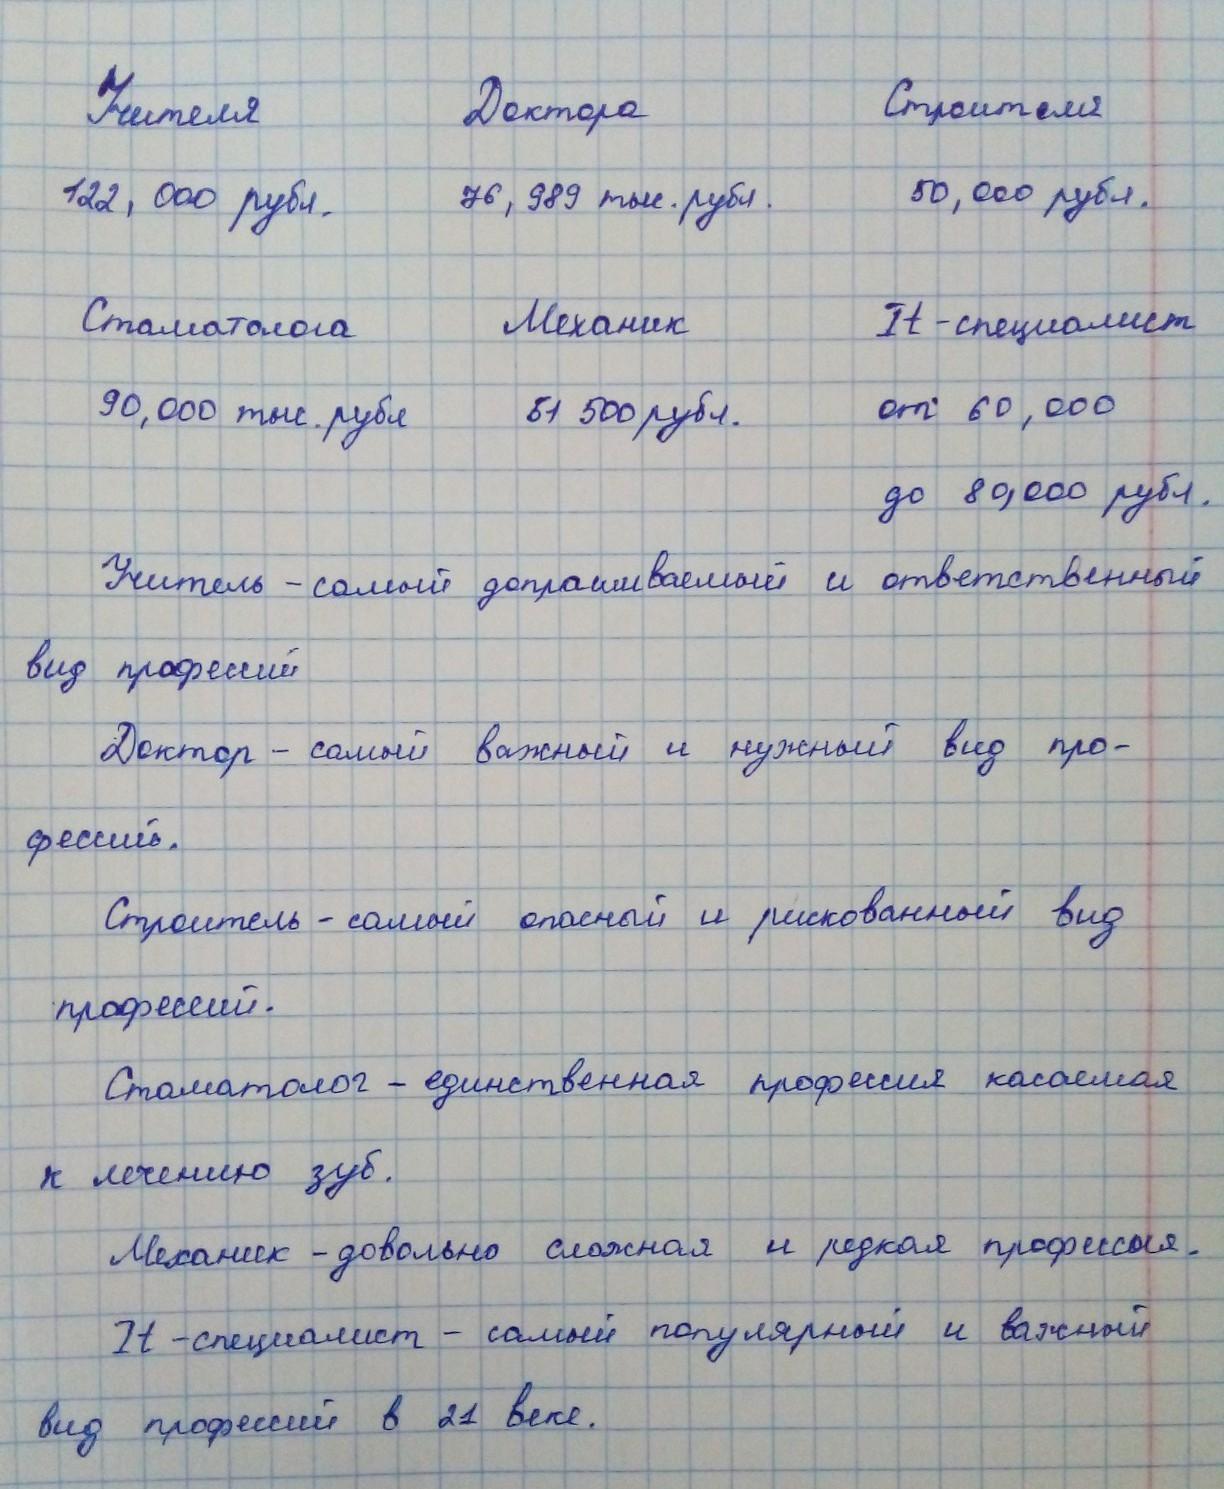 Учителя Доктора Строителя
122, 000 рубл. 76, 989 тыс. рубл. 50,000 рубл.
Стаматолога Механик It-специалист
90,000 тыс. рубл 51 500 рубл. от 60,000
до 80,000 рубл.
Учитель - самый допрашиваемый и ответственный
вид профессий
Доктор - самый важный и нужный вид про-
фессий.
Строитель - самый опасный и рискованный вид
профессий.
Стаматолог - единственная профессия касаемая
к лечению зуб.
Механик - довольно сложная и редкая профессия.
It-специалист - самый популярный и важный
вид профессий в 21 веке.